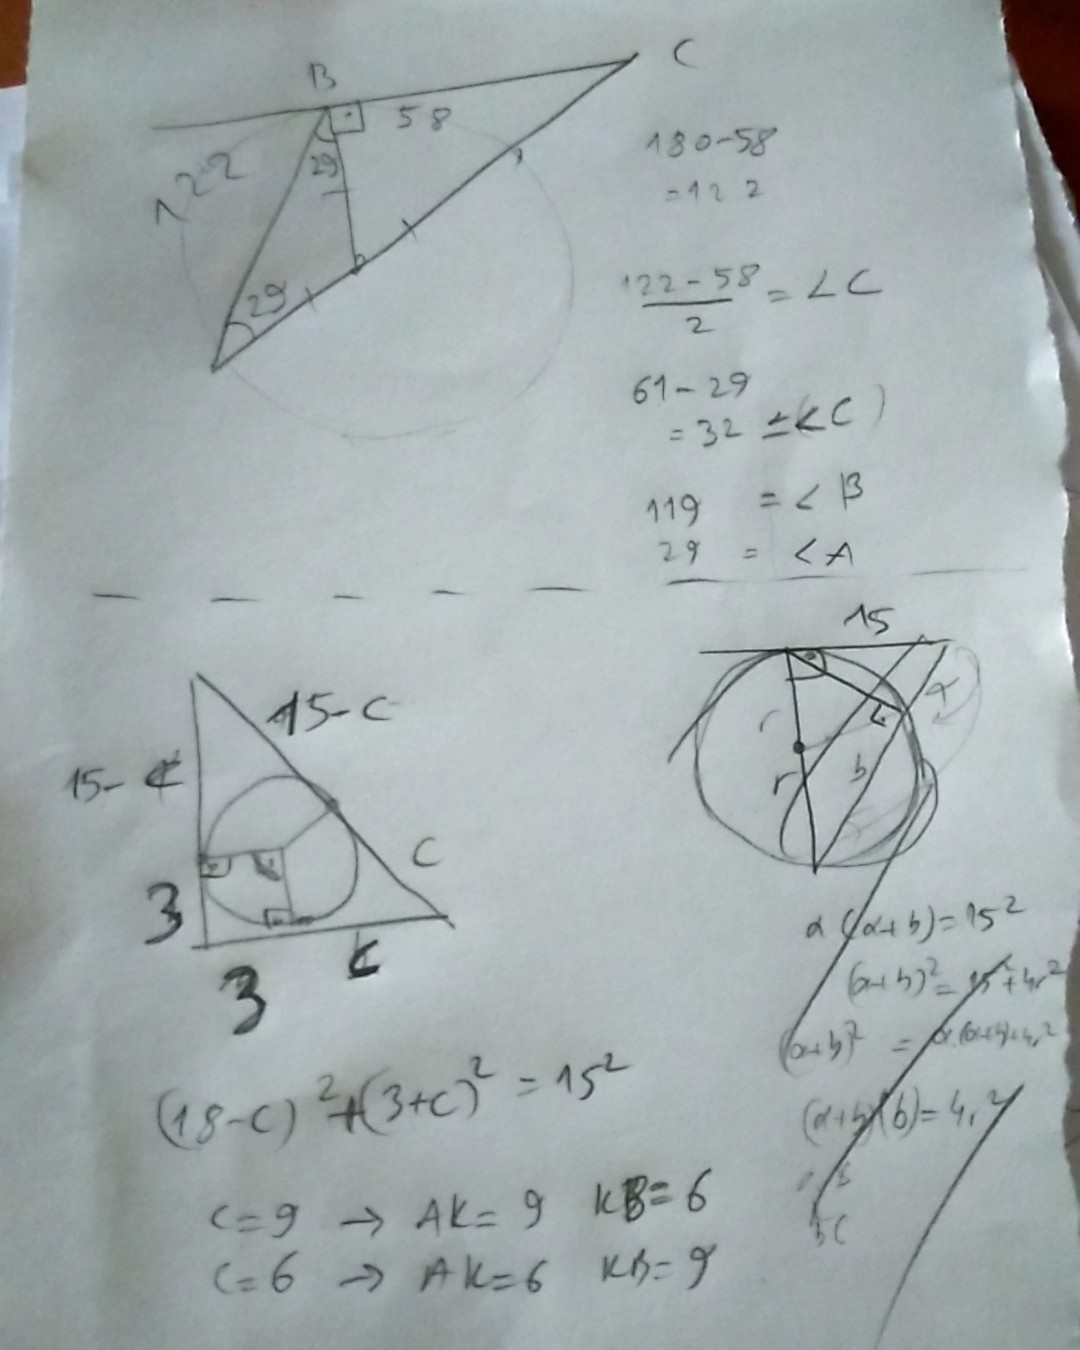 B
C
58
122
29
29
180-58
=122
122-58
2
= ∠C
61-29
= 32
119 = <B
29 = <A
15
15-C
15-
C
3
3
r
r
b
α(α+b)=15²
(α+b)²=15²+4r²
(α+b)² = α.(α+b)+4r²
(α+b)(b)=4r²
(18-C)²+(3+C)² = 15²
C=9 → AK= 9 KB=6
C=6 → AK=6 KB=9